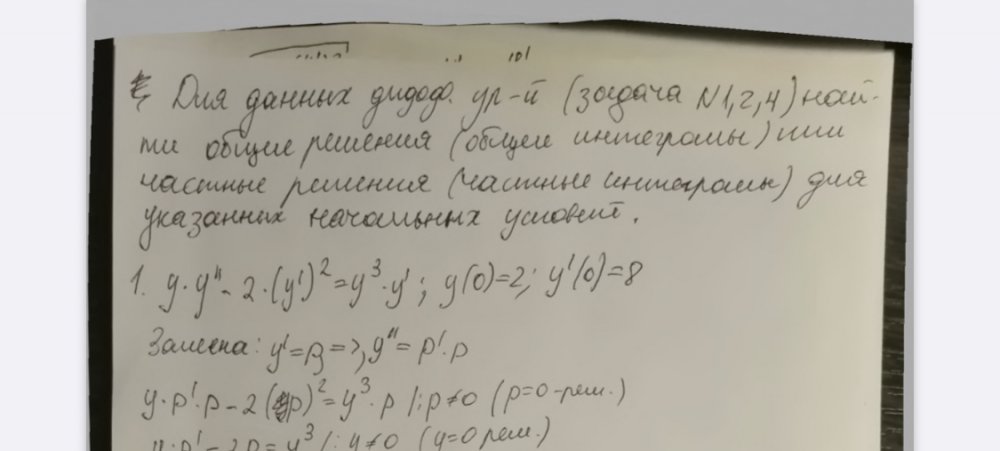 Для данных дифф. ур-й (задача N1,2,4) най-
ти общие решения (общие интегралы) или
частные решения (частные интегралы) для
указанных начальных условий.
1. y·y"- 2·(y')²=y³·y'; y(0)=2; y'(0)=8
Замена: y'=p => y"= p'·p
y·p'·p - 2(p)²=y³·p /:p≠0 (p=0-реш.)
y·p'-2p=y³ /:y≠0 (y=0 реш.)